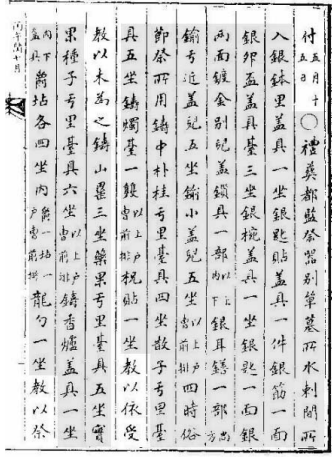 付五月十五日○禮葬都監祭器別單墓所水剌間所
入銀鉢里盖具一坐銀匙貼盖具一件銀筯一面
銀卯盃盖具臺三坐銀椀盖具一坐銀匙一面銀
兩面鍍金別兒盖鎖具一部以上內下銀耳鐥一部
鍮亏近盖兒五坐鍮小盖兒五坐以上戶曹前排四時俗
節祭所用鑄中朴桂亏里臺具四坐散子亏里臺
具五坐鑄燭臺一雙以上戶曹前排祝貼一坐教以依受
教以木為之鑄山罍三坐藥果亏里臺具五坐實
果種子亏里臺具六坐以上戶曹前排鑄香爐盖具一坐
內下盖具爵坫各四坐內爵一坫一戶曹前排龍勺一坐教以祭
丙午閏十月